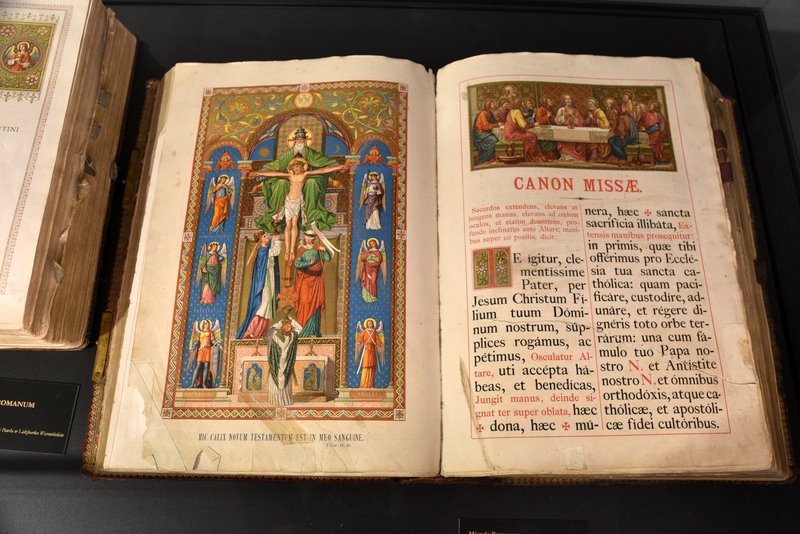 TINI
OMANUM
HIC CALIX NOVUM TESTAMENTUM EST IN MEO SANGUINE.
CANON MISSÆ.
Sacerdos extendens, elevans et
jungens manus, elevans ad cœlum
oculos, et statim demittens, pro-
funde inclinatus ante Altare, mani-
bus super eo positis, dicit:
TE igitur, cle-
mentíssime
Pater, per
Jesum Christum Fí-
lium tuum Dómi-
num nostrum, súp-
plices rogámus, ac
pétimus, Osculatur Al-
tare, uti accépta há-
beas, et benedícas,
Jungit manus, deinde si-
gnat ter super oblata, hæc
✠ dona, hæc ✠ mú-
nera, hæc ✠ sancta
sacrifícia illibáta, Ex-
tensis manibus prosequitur:
in primis, quæ tibi
offérimus pro Ecclé-
sia tua sancta ca-
thólica: quam paci-
ficáre, custodíre, ad-
unáre, et régere di-
gnéris toto orbe ter-
rárum: una cum fá-
mulo tuo Papa no-
stro N. et Antístite
nostro N. et ómnibus
orthodóxis, atque ca-
thólicæ, et apostóli-
cæ fídei cultóribus.